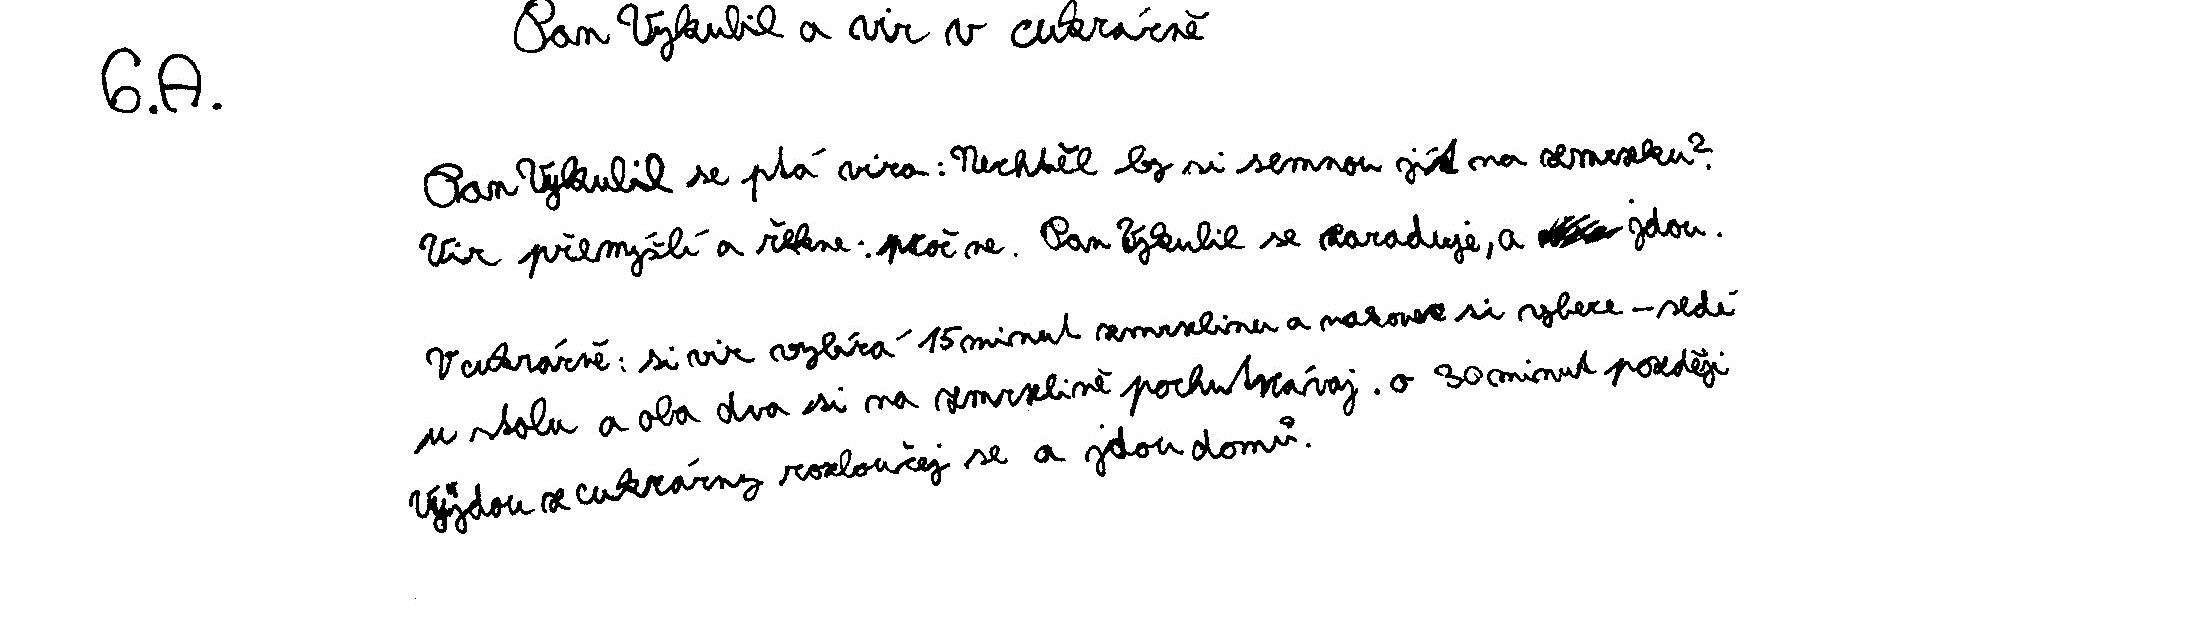 Pan Vykulil a vir v cukrárně
6.A.
Pan Vykulil se ptá vira: Nechtěl by si semnou jít na zmrzku?
Vir přemýšlí a řekne: proč ne. Pan Vykulil se zaraduje, a jdou.
V cukrárně: si vir vybírá 15 minut zmrzlinu a nakonec si vybere – sedí
u stolu a oba dva si na zmrzlině pochutnávaj. o 30 minut později
Vyjdou z cukrárny rozloučej se a jdou domů.